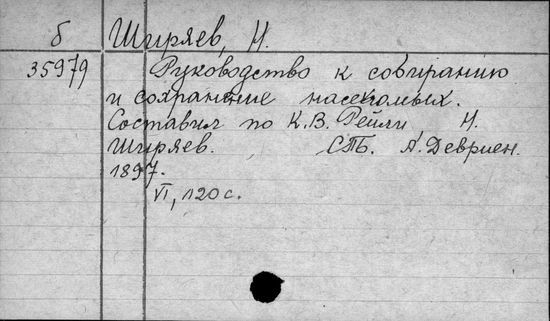 б Ширяев, Н.
35979 Руководство к собиранию
и сохранение насекомых.
Составил по К.В. Рейли Н.
Ширяев. СПБ. А. Девриен.
1897.
VI, 120 с.